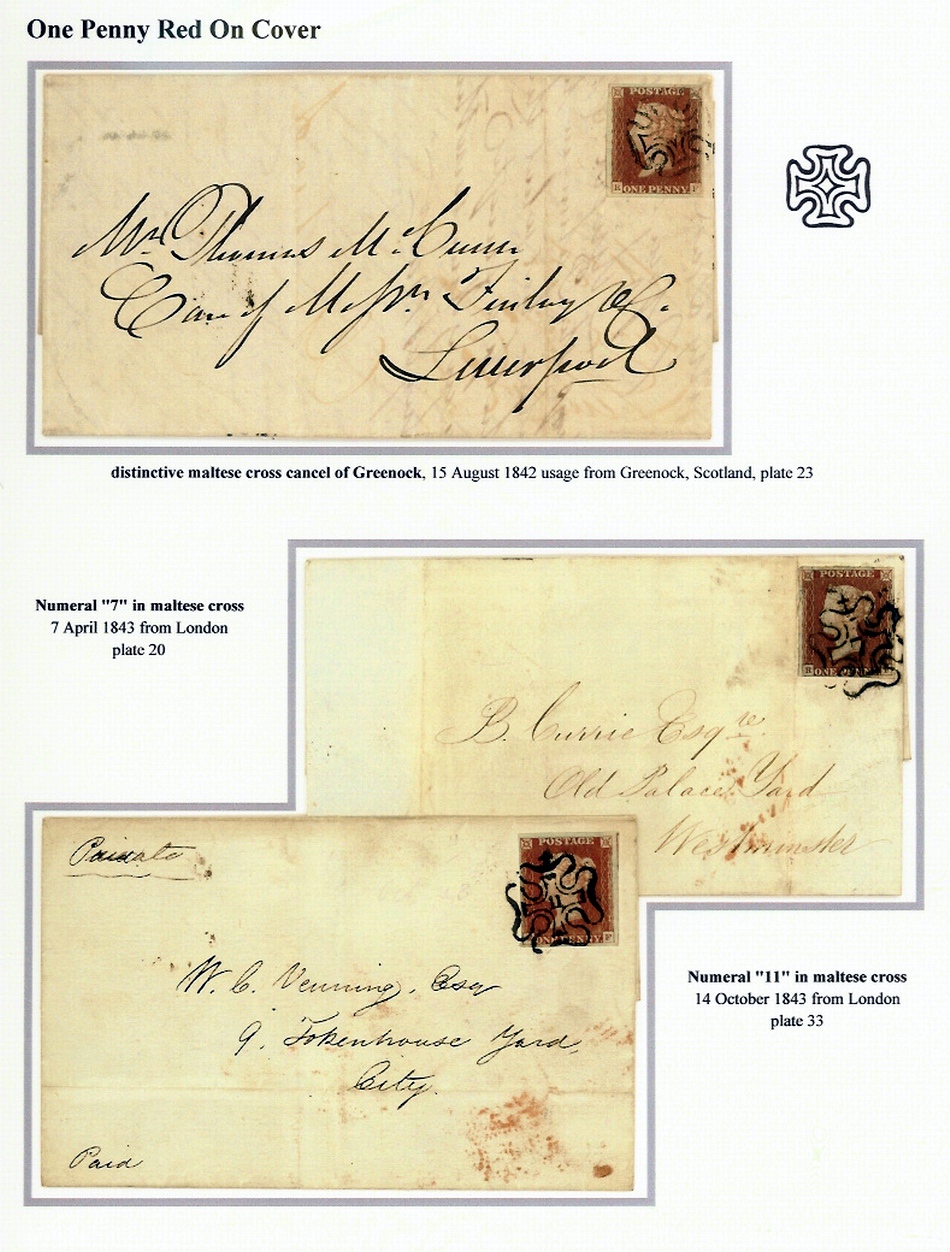 One Penny Red On Cover
POSTAGE
ONE PENNY
Mr. Thomas
Care of Messrs. Finlay & Co.
Liverpool
distinctive maltese cross cancel of Greenock, 15 August 1842 usage from Greenock, Scotland, plate 23
Numeral "7" in maltese cross
7 April 1843 from London
plate 20
POSTAGE
ONE PENNY
B. Currie Esqre.
Old Palace Yard
Westminster
Private
POSTAGE
ONE PENNY F
W. C. Venning, Esq
9. Tokenhouse Yard,
City.
Paid
Numeral "11" in maltese cross
14 October 1843 from London
plate 33